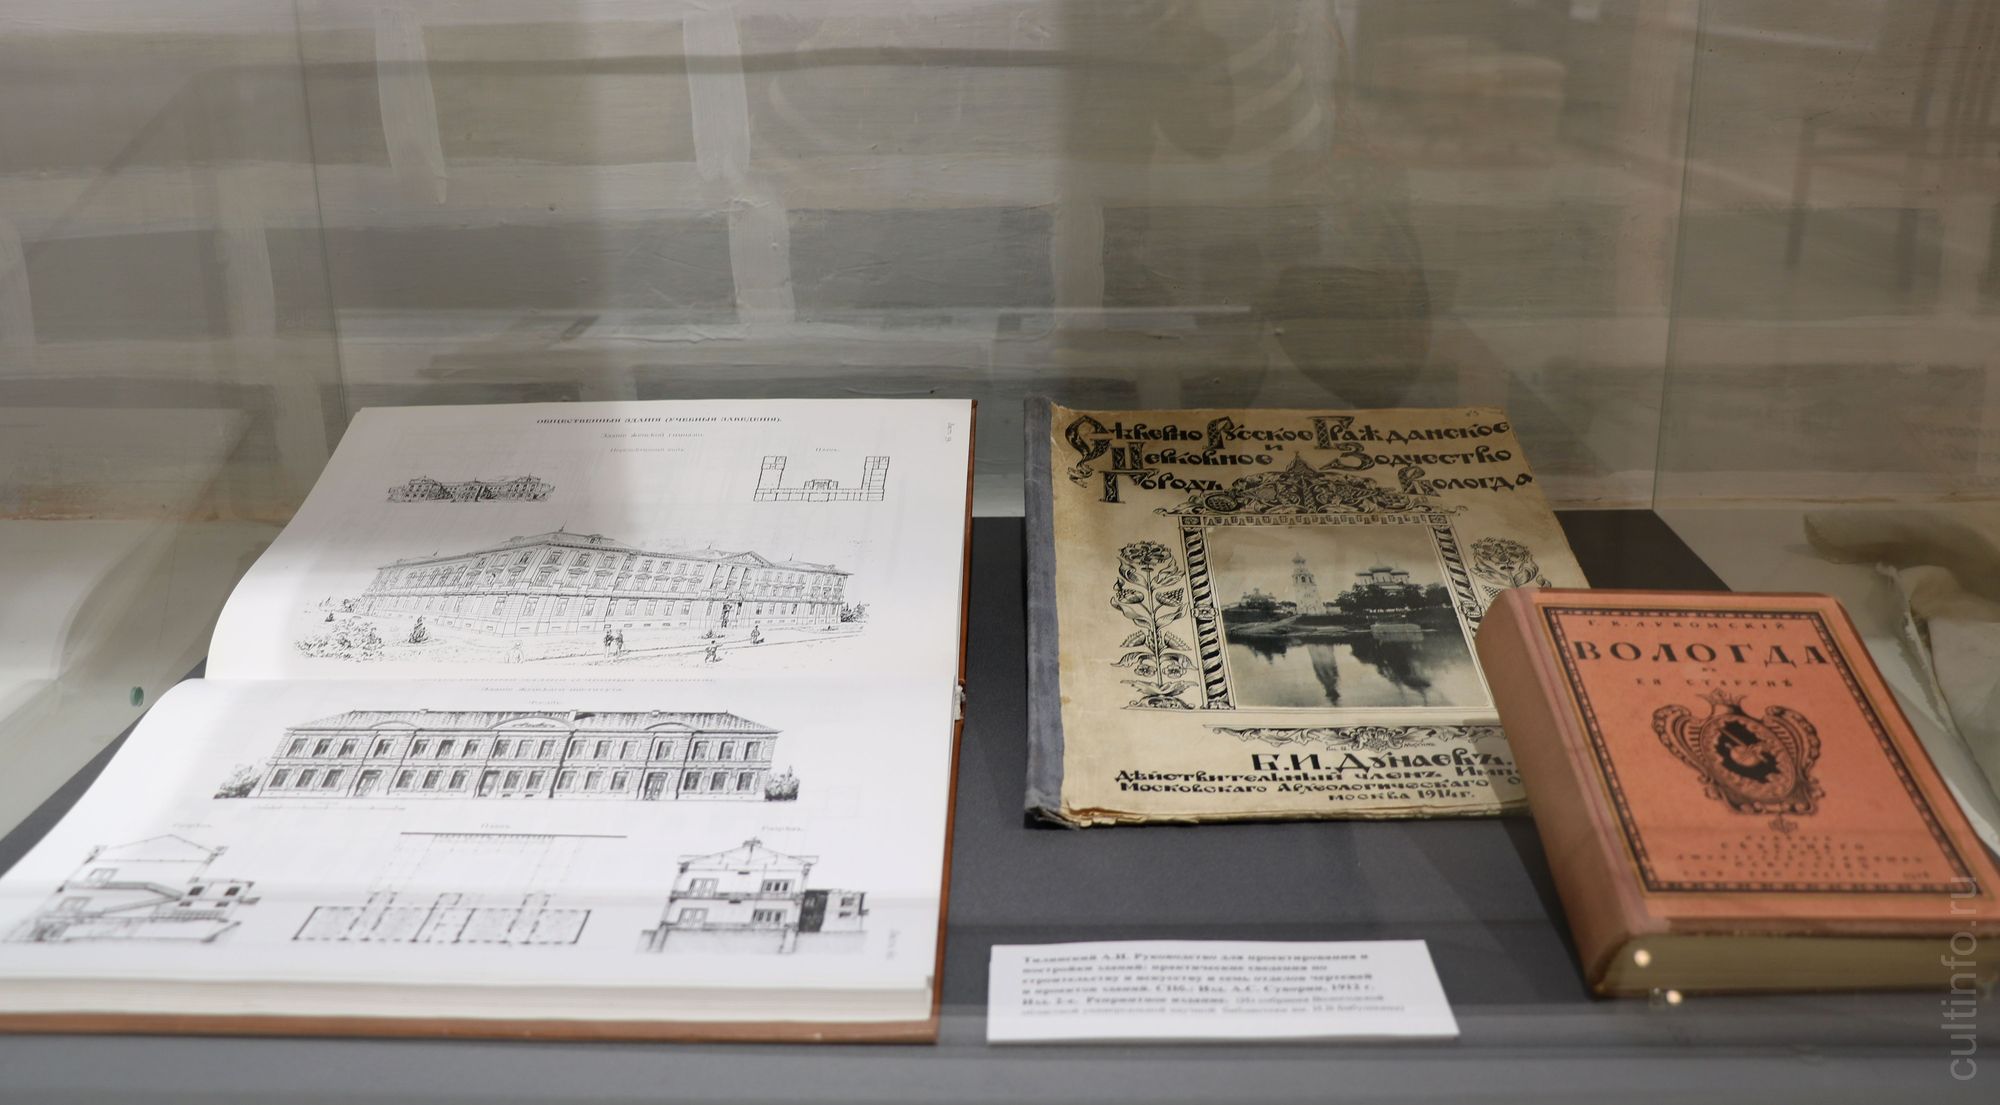 ОБЩЕСТВЕННЫЯ ЗДАНІЯ (УЧЕБНЫЯ ЗАВЕДЕНІЯ).
Зданіе женской гимназіи.
Планъ.
Зданіе женскаго института.
Разрѣзъ.
Планъ.
Разрѣзъ.
Сѣверно Русское Гражданское
и
Церковное Зодчество
Городъ Вологда
Б.И. Дунаевъ.
Дѣйствительный членъ Импе
Московскаго Археологическаго О
Москва 1914 г.
Г. К. ЛУКОМСКІЙ
ВОЛОГДА
ВЪ
ЕЯ СТАРИНѢ
СѢВЕРНАГО
1914
Тилинский А.И. Руководство для проектирования и
постройки зданий: практические сведения по
строительству и искусству и семь отделов чертежей
и проектов зданий. СПб.: Изд. А.С. Суворин, 1912 г.
Изд. 2-е. Репринтное издание. (Из собрания Вологодской
областной универсальной научной библиотеки им. И.В. Бабушкина)
cultinfo.ru